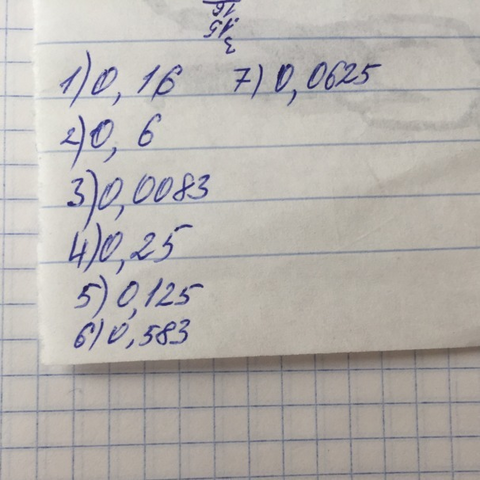 1) 0,16 7) 0,0625
2) 0,6
3) 0,0083
4) 0,25
5) 0,125
6) 0,583